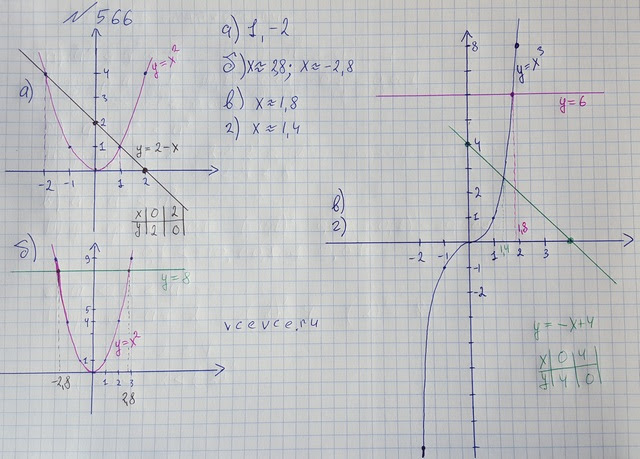 N 566
а) 1, -2
б) x ≈ 2,8; x ≈ -2,8
в) x ≈ 1,8
г) x ≈ 1,4
а)
y = x²
4
3
2
1
y = 2 - x
-2 -1 1 2
x 0 2
y 2 0
б)
9
y = 8
5
4
y = x²
1
-2,8 1 2 3
2,8
vcevce.ru
8
y = x³
y = 6
4
2
1
в)
г)
-2 -1 1,4 2 3
1,8
-1
-2
y = -x + 4
x 0 4
y 4 0